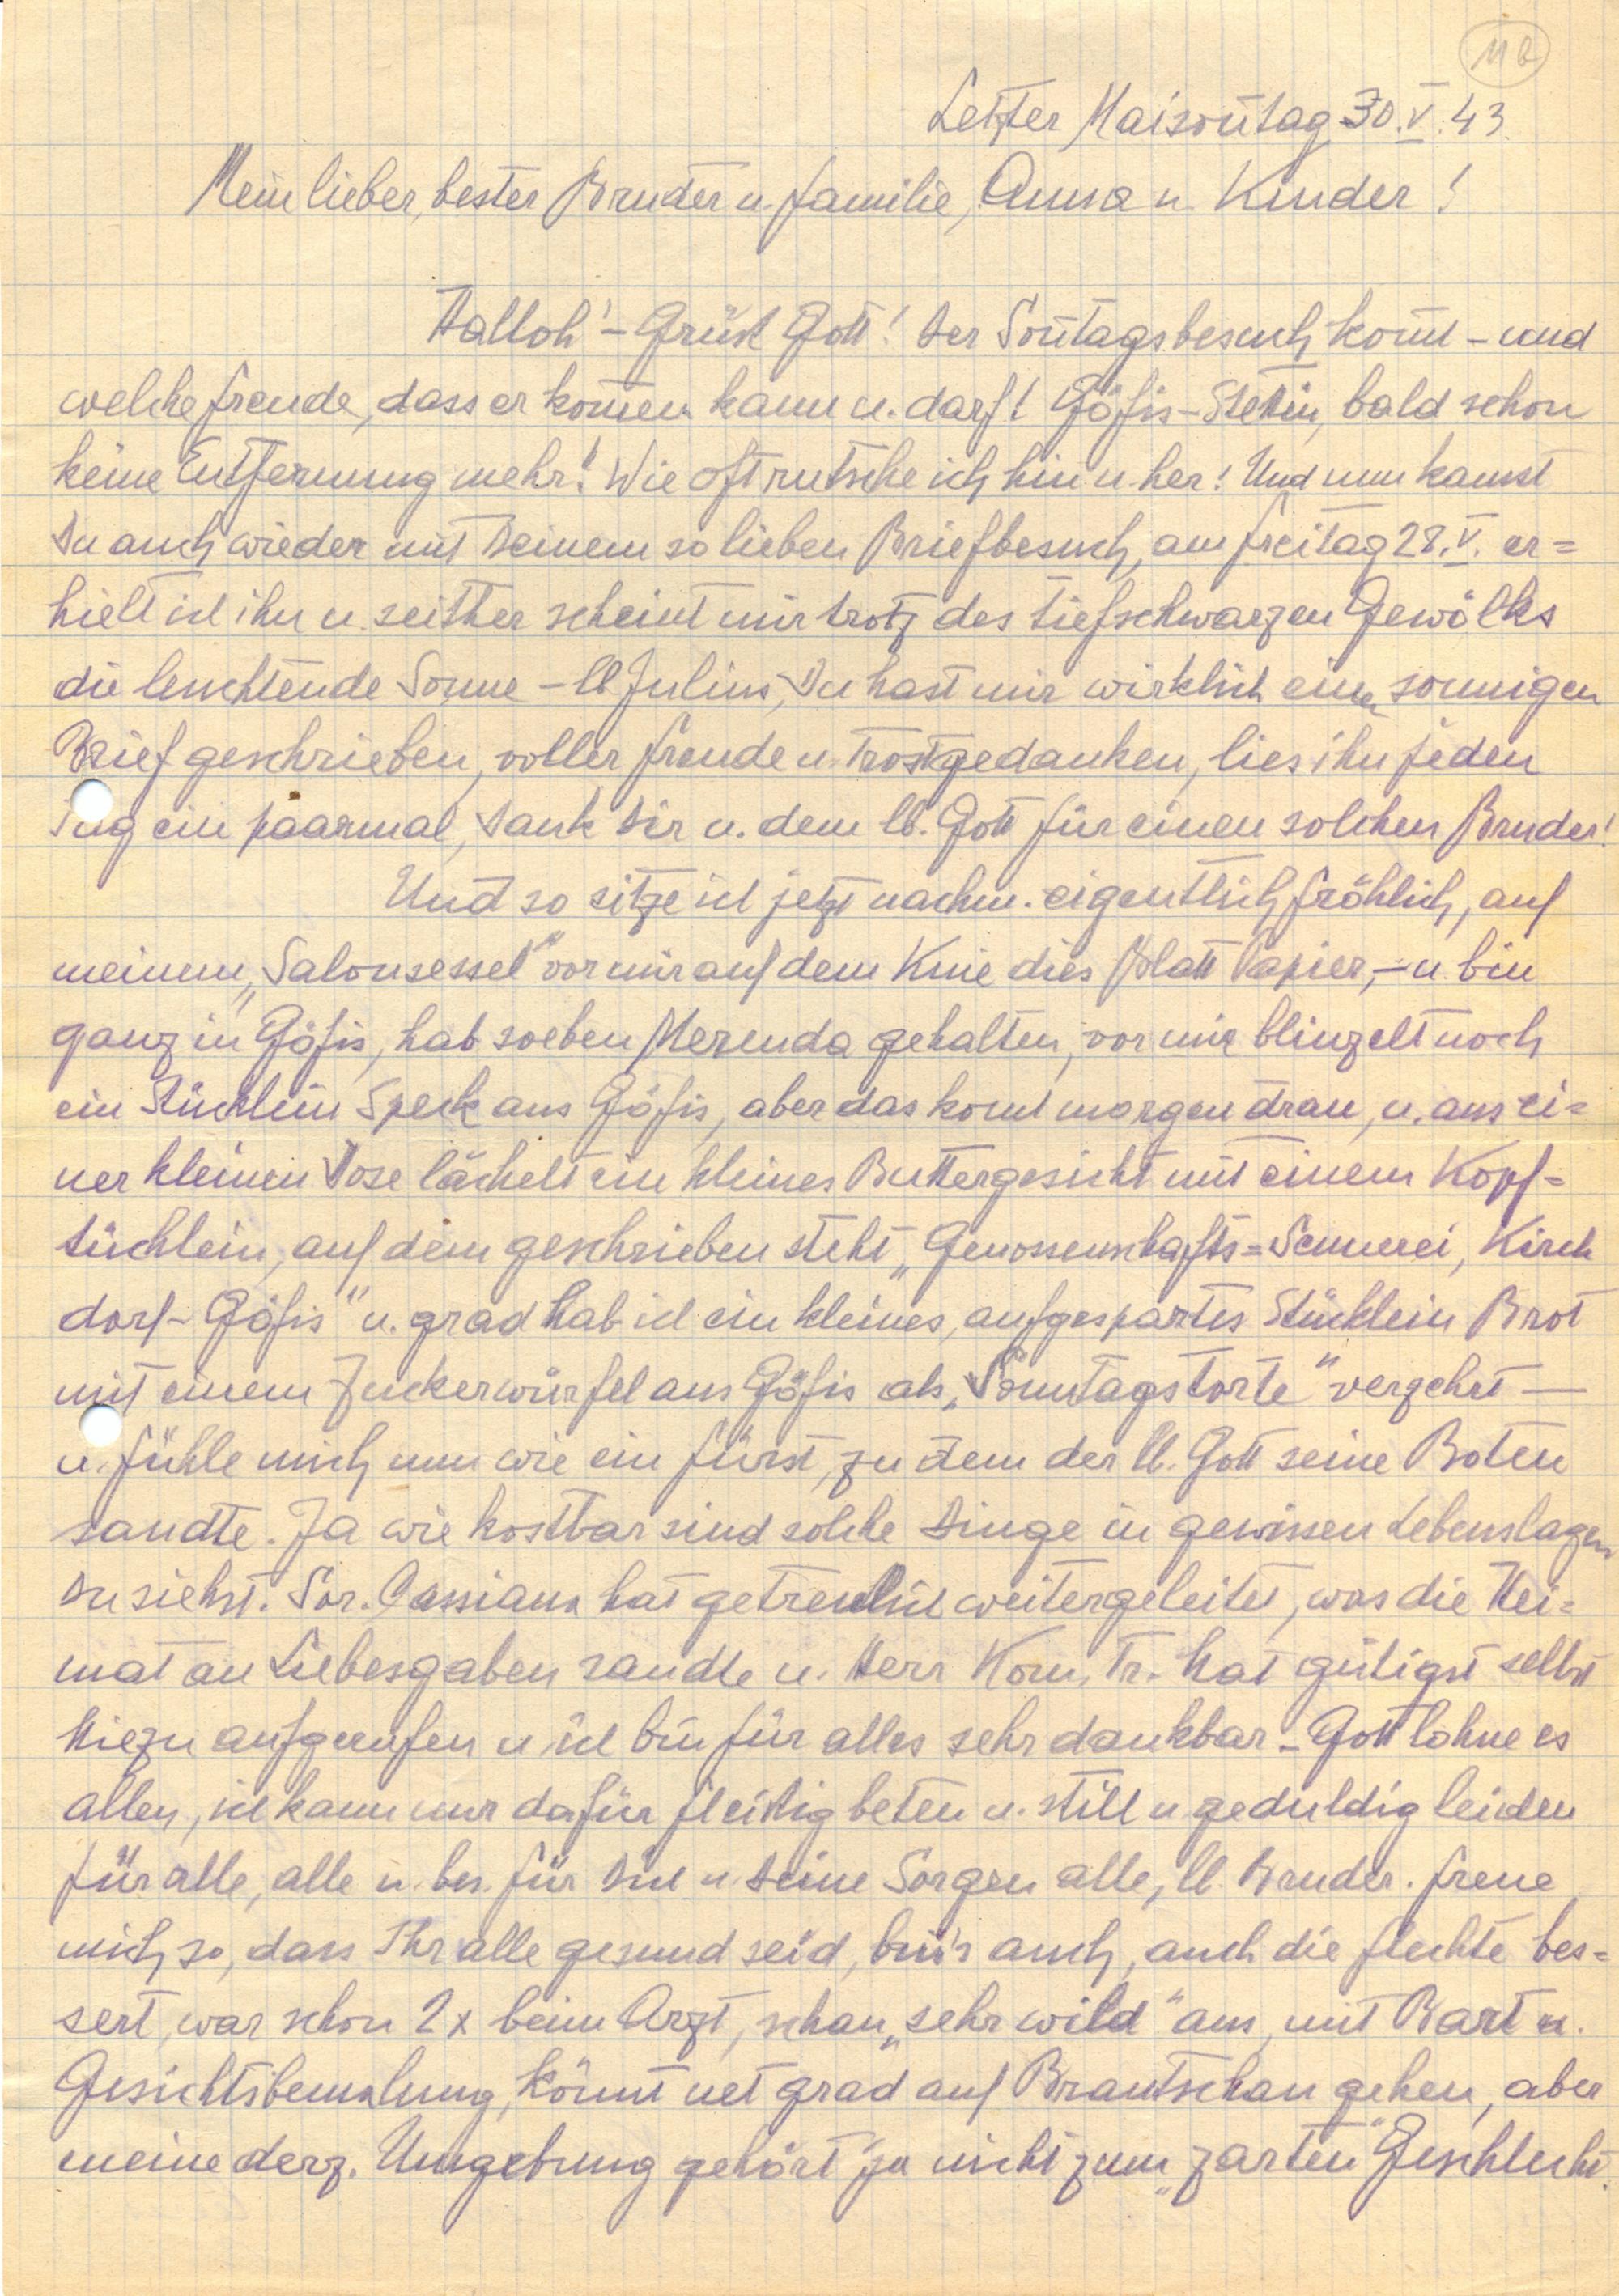 11 b
Letzter Maisontag 30.V.43.
Mein lieber, bester Bruder u. Familie, Anna u. Kinder!
Halloh! – Grüst Gott! Der Sontagsbesuch komt – und
welche Freude, dass er komen kann u. darf! Göfis–Stettin, bald schon
keine Entfernung mehr! Wie oft rutsche ich hin u. her! Und nun kamst
Du auch wieder mit Deinem so lieben Briefbesuch, am Freitag 28.V. er=
hielt ich ihn u. seither scheint mir trotz des tiefschwarzen Gewölks
die leuchtende Sonne – lb. Julius, Du hast mir wirklich einen sonnigen
Brief geschrieben, voller Freude u. Trostgedanken, lies ihn jeden
Tag ein paarmal, Dank Dir u. dem lb. Gott für einen solchen Bruder!
Und so sitze ich jetzt nachm. eigentlich fröhlich, auf
meinem „Salonsessel" vor mir auf dem Knie dies Blatt Papier, – u. bin
ganz in Göfis, hab soeben Merenda gehalten, vor mir blinzelt noch
ein Stücklein Speck aus Göfis, aber das komt morgen dran, u. aus ei=
ner kleinen Dose lächelt ein kleines Buttergesicht mit einem Kopf=
tüchlein, auf dem geschrieben steht „Genossenschafts=Sennerei, Kirch
dorf–Göfis" u. grad hab ich ein kleines, aufgespartes Stücklein Brot
mit einem Zuckerwürfel aus Göfis als „Sonntagstorte" verzehrt —
u. fühle mich nun wie ein Fürst, zu dem der lb. Gott seine Boten
sandte. Ja wie kostbar sind solche Dinge in gewissen Lebenslagen
Du siehst. Sor. Cassiana hat getreulich weitergeleitet, was die Hei=
mat an Liebesgaben sandte u. Herr Kom. Tr. hat gütigst selbst
hiezu aufgerufen u. ich bin für alles sehr dankbar – Gott lohne es
allen, ich kann nur dafür fleißig beten u. still u. geduldig leiden
für alle, alle u. bes. für Dich u. Deine Sorgen alle, lb. Bruder. Freue
mich so, dass Ihr alle gesund seid, bin's auch, auch die Flechte bes=
sert, war schon 2x beim Arzt, schau „sehr wild" aus, mit Bart u.
Gesichtsbemalung, könnt net grad auf Brautschau gehen, aber
meine derz. Umgebung gehört ja nicht zum „zarten" Geschlecht.